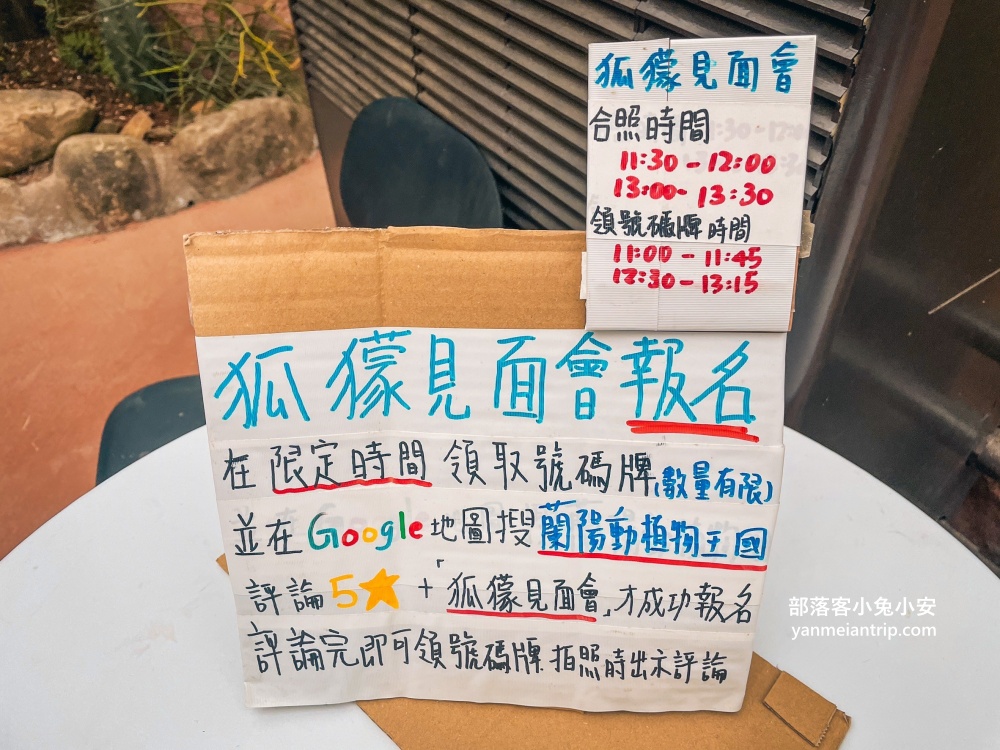 狐獴見面會
合照時間
11:30 - 12:00
13:00 - 13:30
領號碼牌時間
11:00 - 11:45
12:30 - 13:15
狐獴見面會報名
在限定時間 領取號碼牌(數量有限)
並在Google地圖搜蘭陽動植物王國
評論5★+「狐獴見面會」才成功報名
評論完即可領號碼牌 拍照時出示評論
部落客小兔小安
yanmeiantrip.com